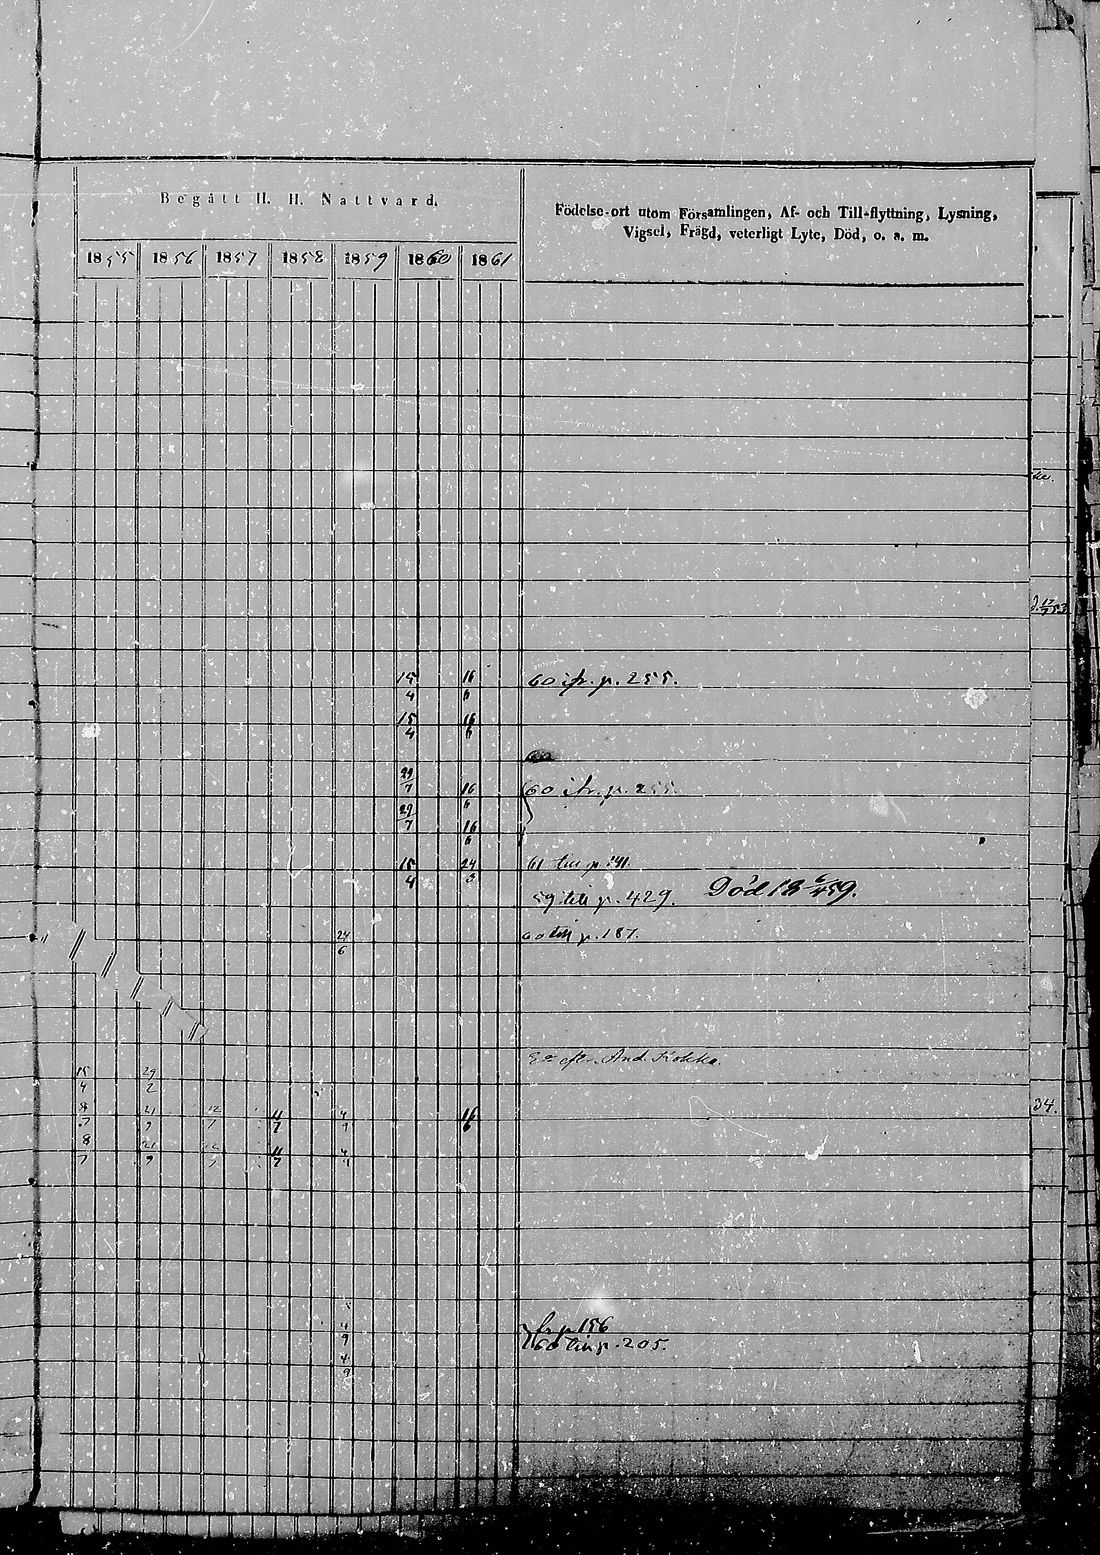 Begått H. H. Nattvard.
Födelse-ort utom Församlingen, Af- och Till-flyttning, Lysning,
Vigsel, Frägd, veterligt Lyte, Död, o. a. m.
1855 1856 1857 1858 1859 1860 1861
15 16 60 ifr. p. 255.
4 6
15 16
4 6
29
7 16 60 ifr. p. 255.
29 6
7 16
6
15 24 61 till p. 141.
4 3
59 till p. 429. Död 18 59.
24 60 till p. 187.
6
And. Kokko.
15 29
4 2
8 21 12 11 4 16 34.
7 9 7 7 9 6
8 21 12 11 4
7 9 7 7 9
4 fr p 156
9 60 till p. 205.
4
9